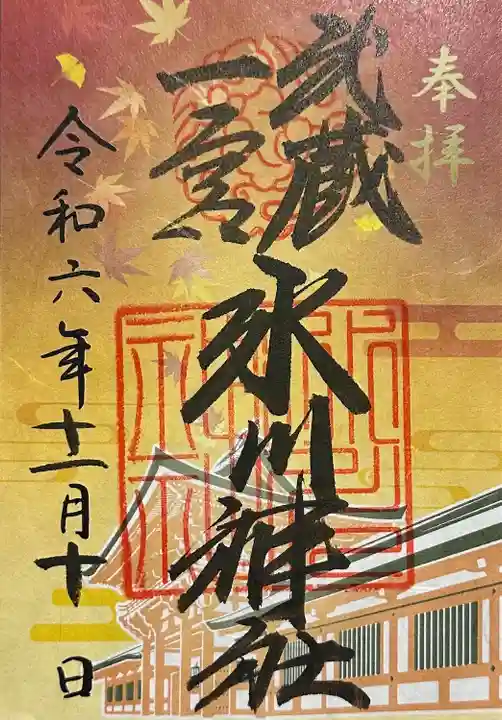 奉拝
武蔵
一宮
氷川神社
令和六年十一月十日